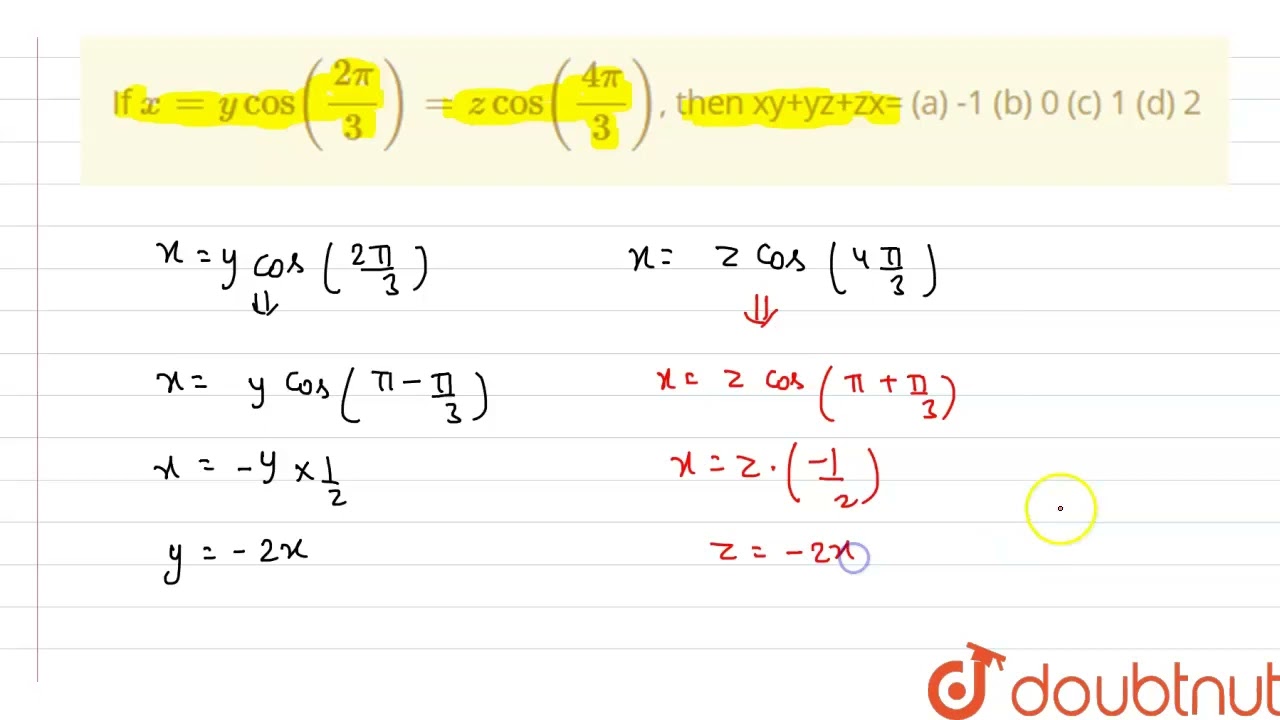 If x = y cos(2π/3) = z cos(4π/3), then xy+yz+zx= (a) -1 (b) 0 (c) 1 (d) 2
x = y cos(2π/3)
x = z cos(4π/3)
⇓
⇓
x = y cos(π - π/3)
x = z cos(π + π/3)
x = -y × 1/2
x = z · (-1/2)
y = -2x
z = -2x
doubtnut